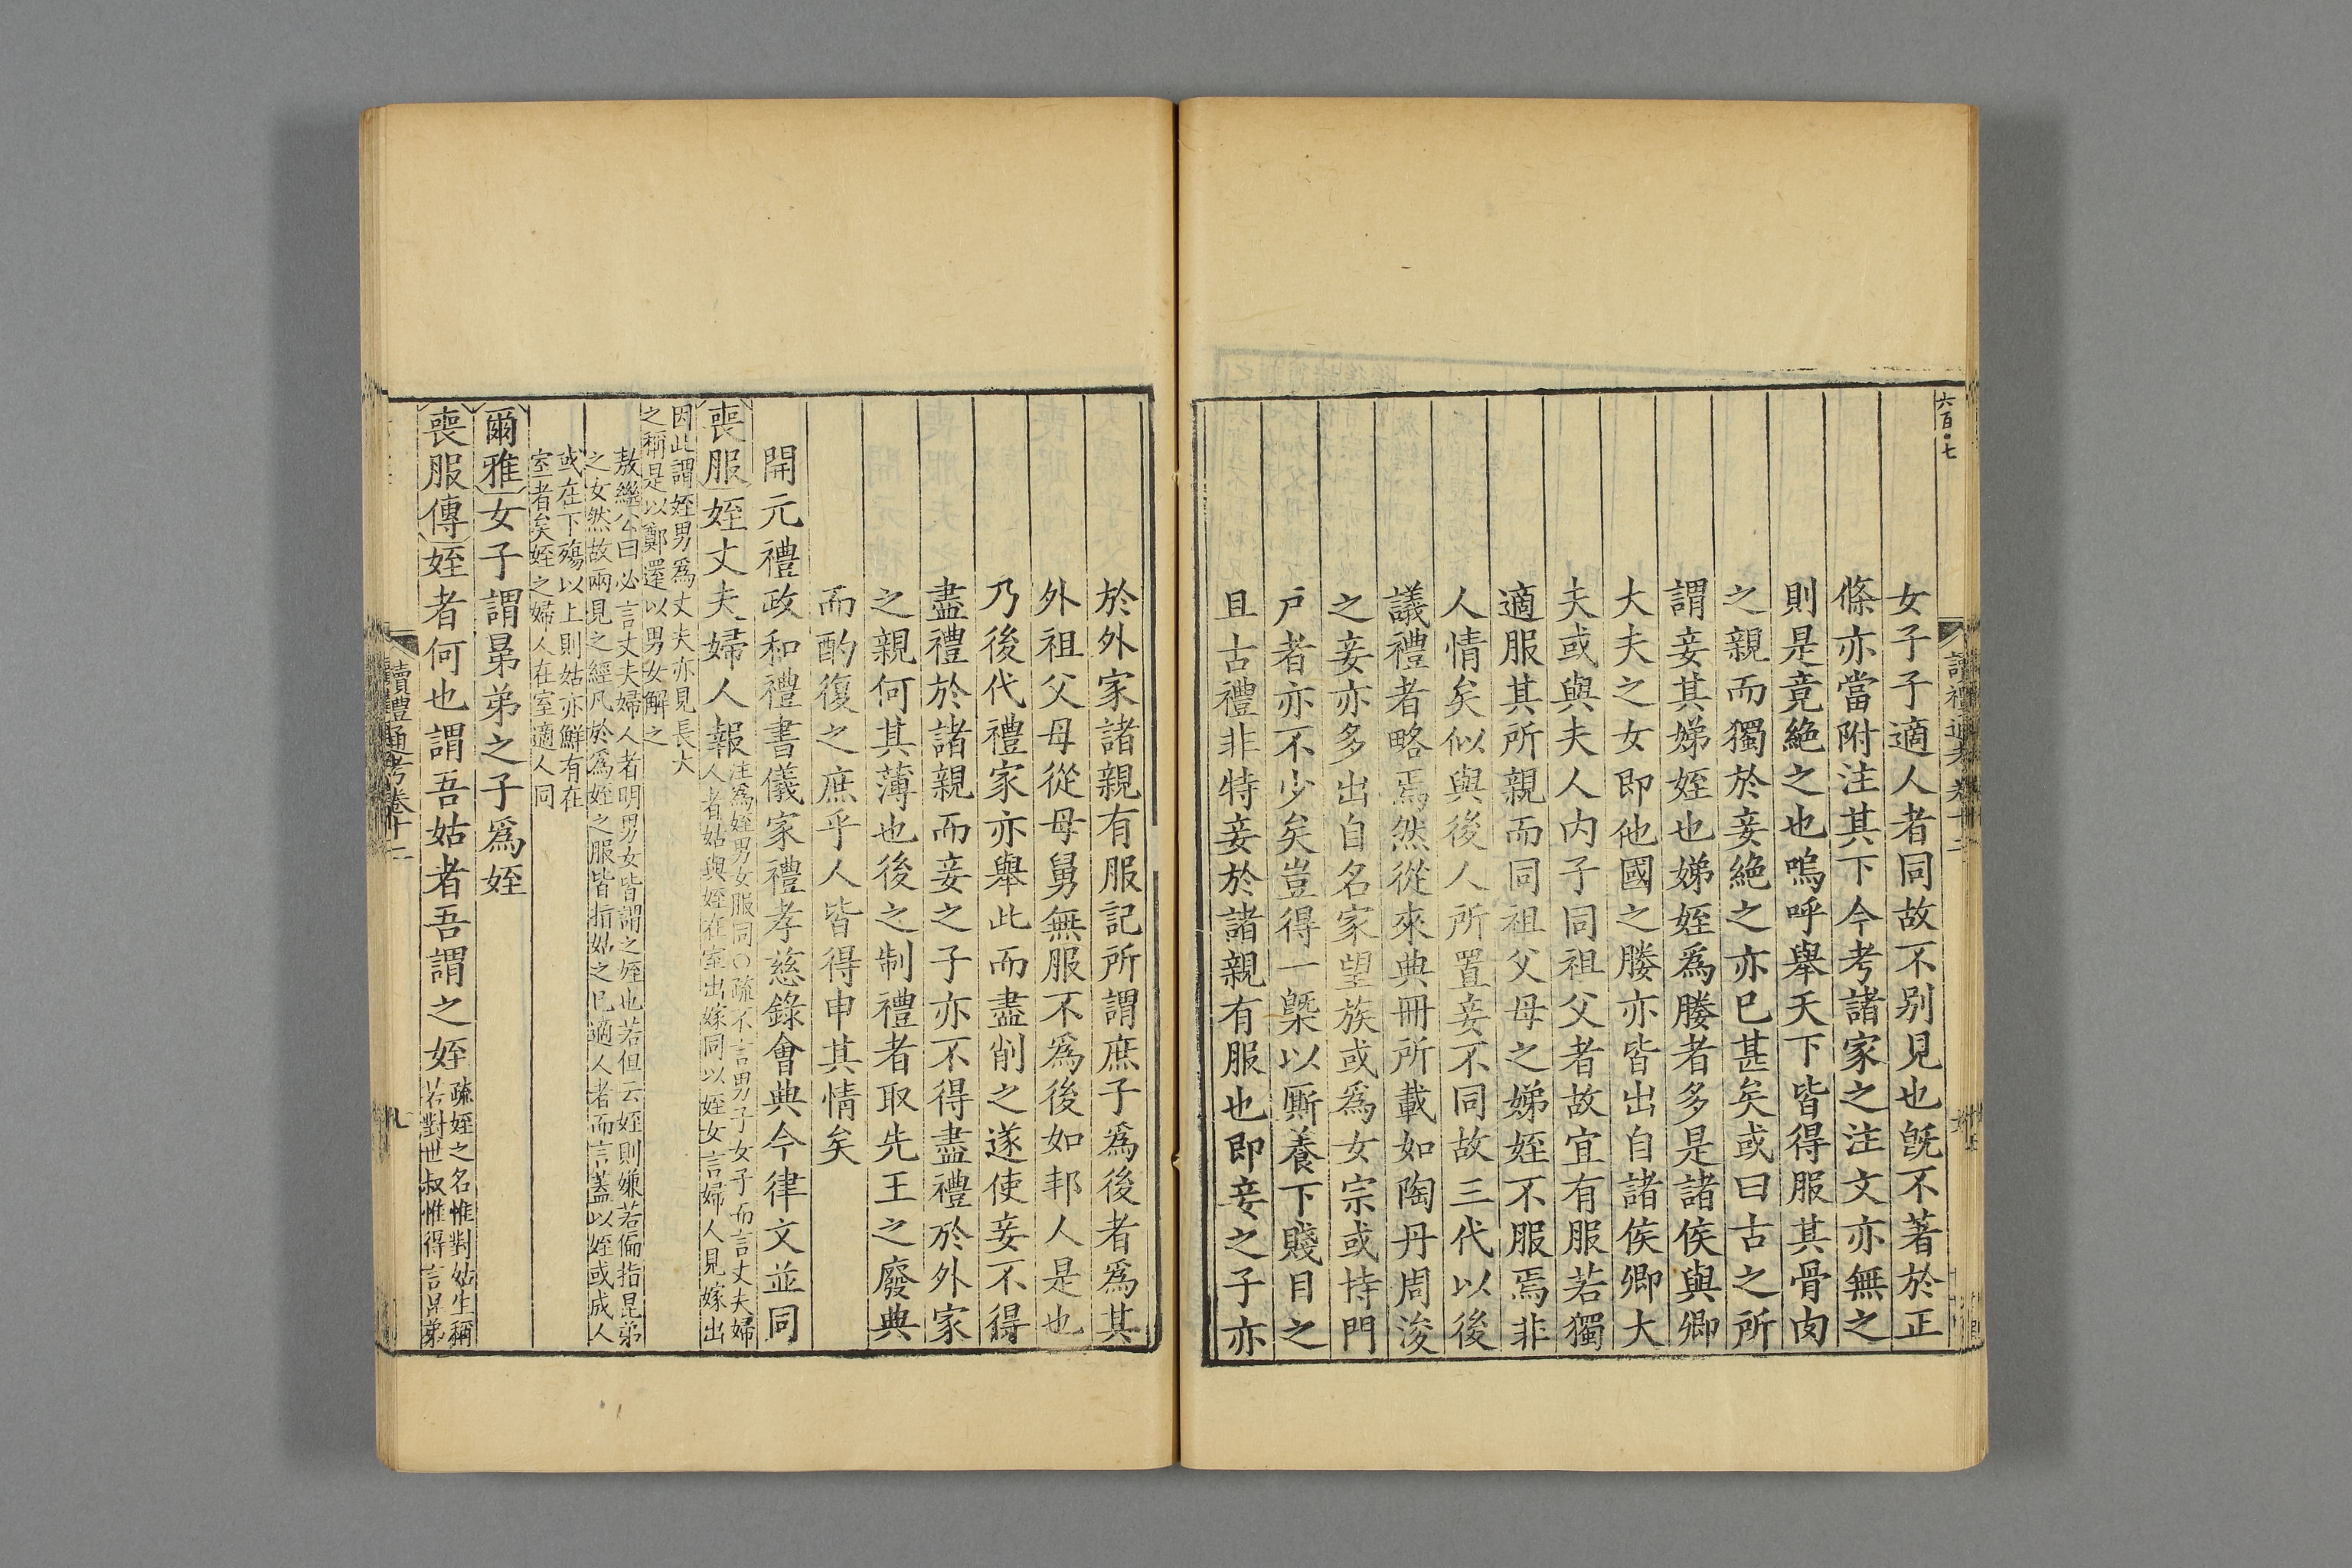 六百七
女子子適人者同故不别見也旣不著於正
條亦當附注其下今考諸家之注文亦無之
則是竟絶之也嗚呼舉天下皆得服其骨肉
之親而獨於妾絶之亦已甚矣或曰古之所
謂妾其娣姪也娣姪爲媵者多是諸侯與卿
大夫之女即他國之媵亦皆出自諸侯卿大
夫或與夫人内子同祖父者故宜有服若獨
適服其所親而同祖父母之娣姪不服焉非
人情矣似與後人所置妾不同故三代以後
議禮者略焉然從來典冊所載如陶丹周浚
之妾亦多出自名家望族或爲女宗或持門
戸者亦不少矣豈得一槩以厮養下賤目之
且古禮非特妾於諸親有服也即妾之子亦
於外家諸親有服記所謂庶子爲後者爲其
外祖父母從母舅無服不爲後如邦人是也
乃後代禮家亦舉此而盡削之遂使妾不得
盡禮於諸親而妾之子亦不得盡禮於外家
之親何其薄也後之制禮者取先王之廢典
而酌復之庶乎人皆得申其情矣
開元禮政和禮書儀家禮孝慈錄會典今律文並同
喪服姪丈夫婦人報
注爲姪男女服同○疏不言男子女子而言丈夫婦
人者姑與姪在室出嫁同以姪女言婦人見嫁出
因此謂姪男爲丈夫亦見長大
之稱是以鄭還以男女解之
敖繼公曰必言丈夫婦人者明男女皆謂之姪也若但云姪則嫌若偏指昆弟
之女然故兩見之經凡於爲姪之服皆指姑之已適人者而言蓋以姪或成人
或在下殤以上則姑亦鮮有在
室者矣姪之婦人在室適人同
爾雅女子謂晜弟之子爲姪
喪服傳姪者何也謂吾姑者吾謂之姪
疏姪之名惟對姑生稱
若對世叔惟得言昆弟
讀禮通考卷十二
九